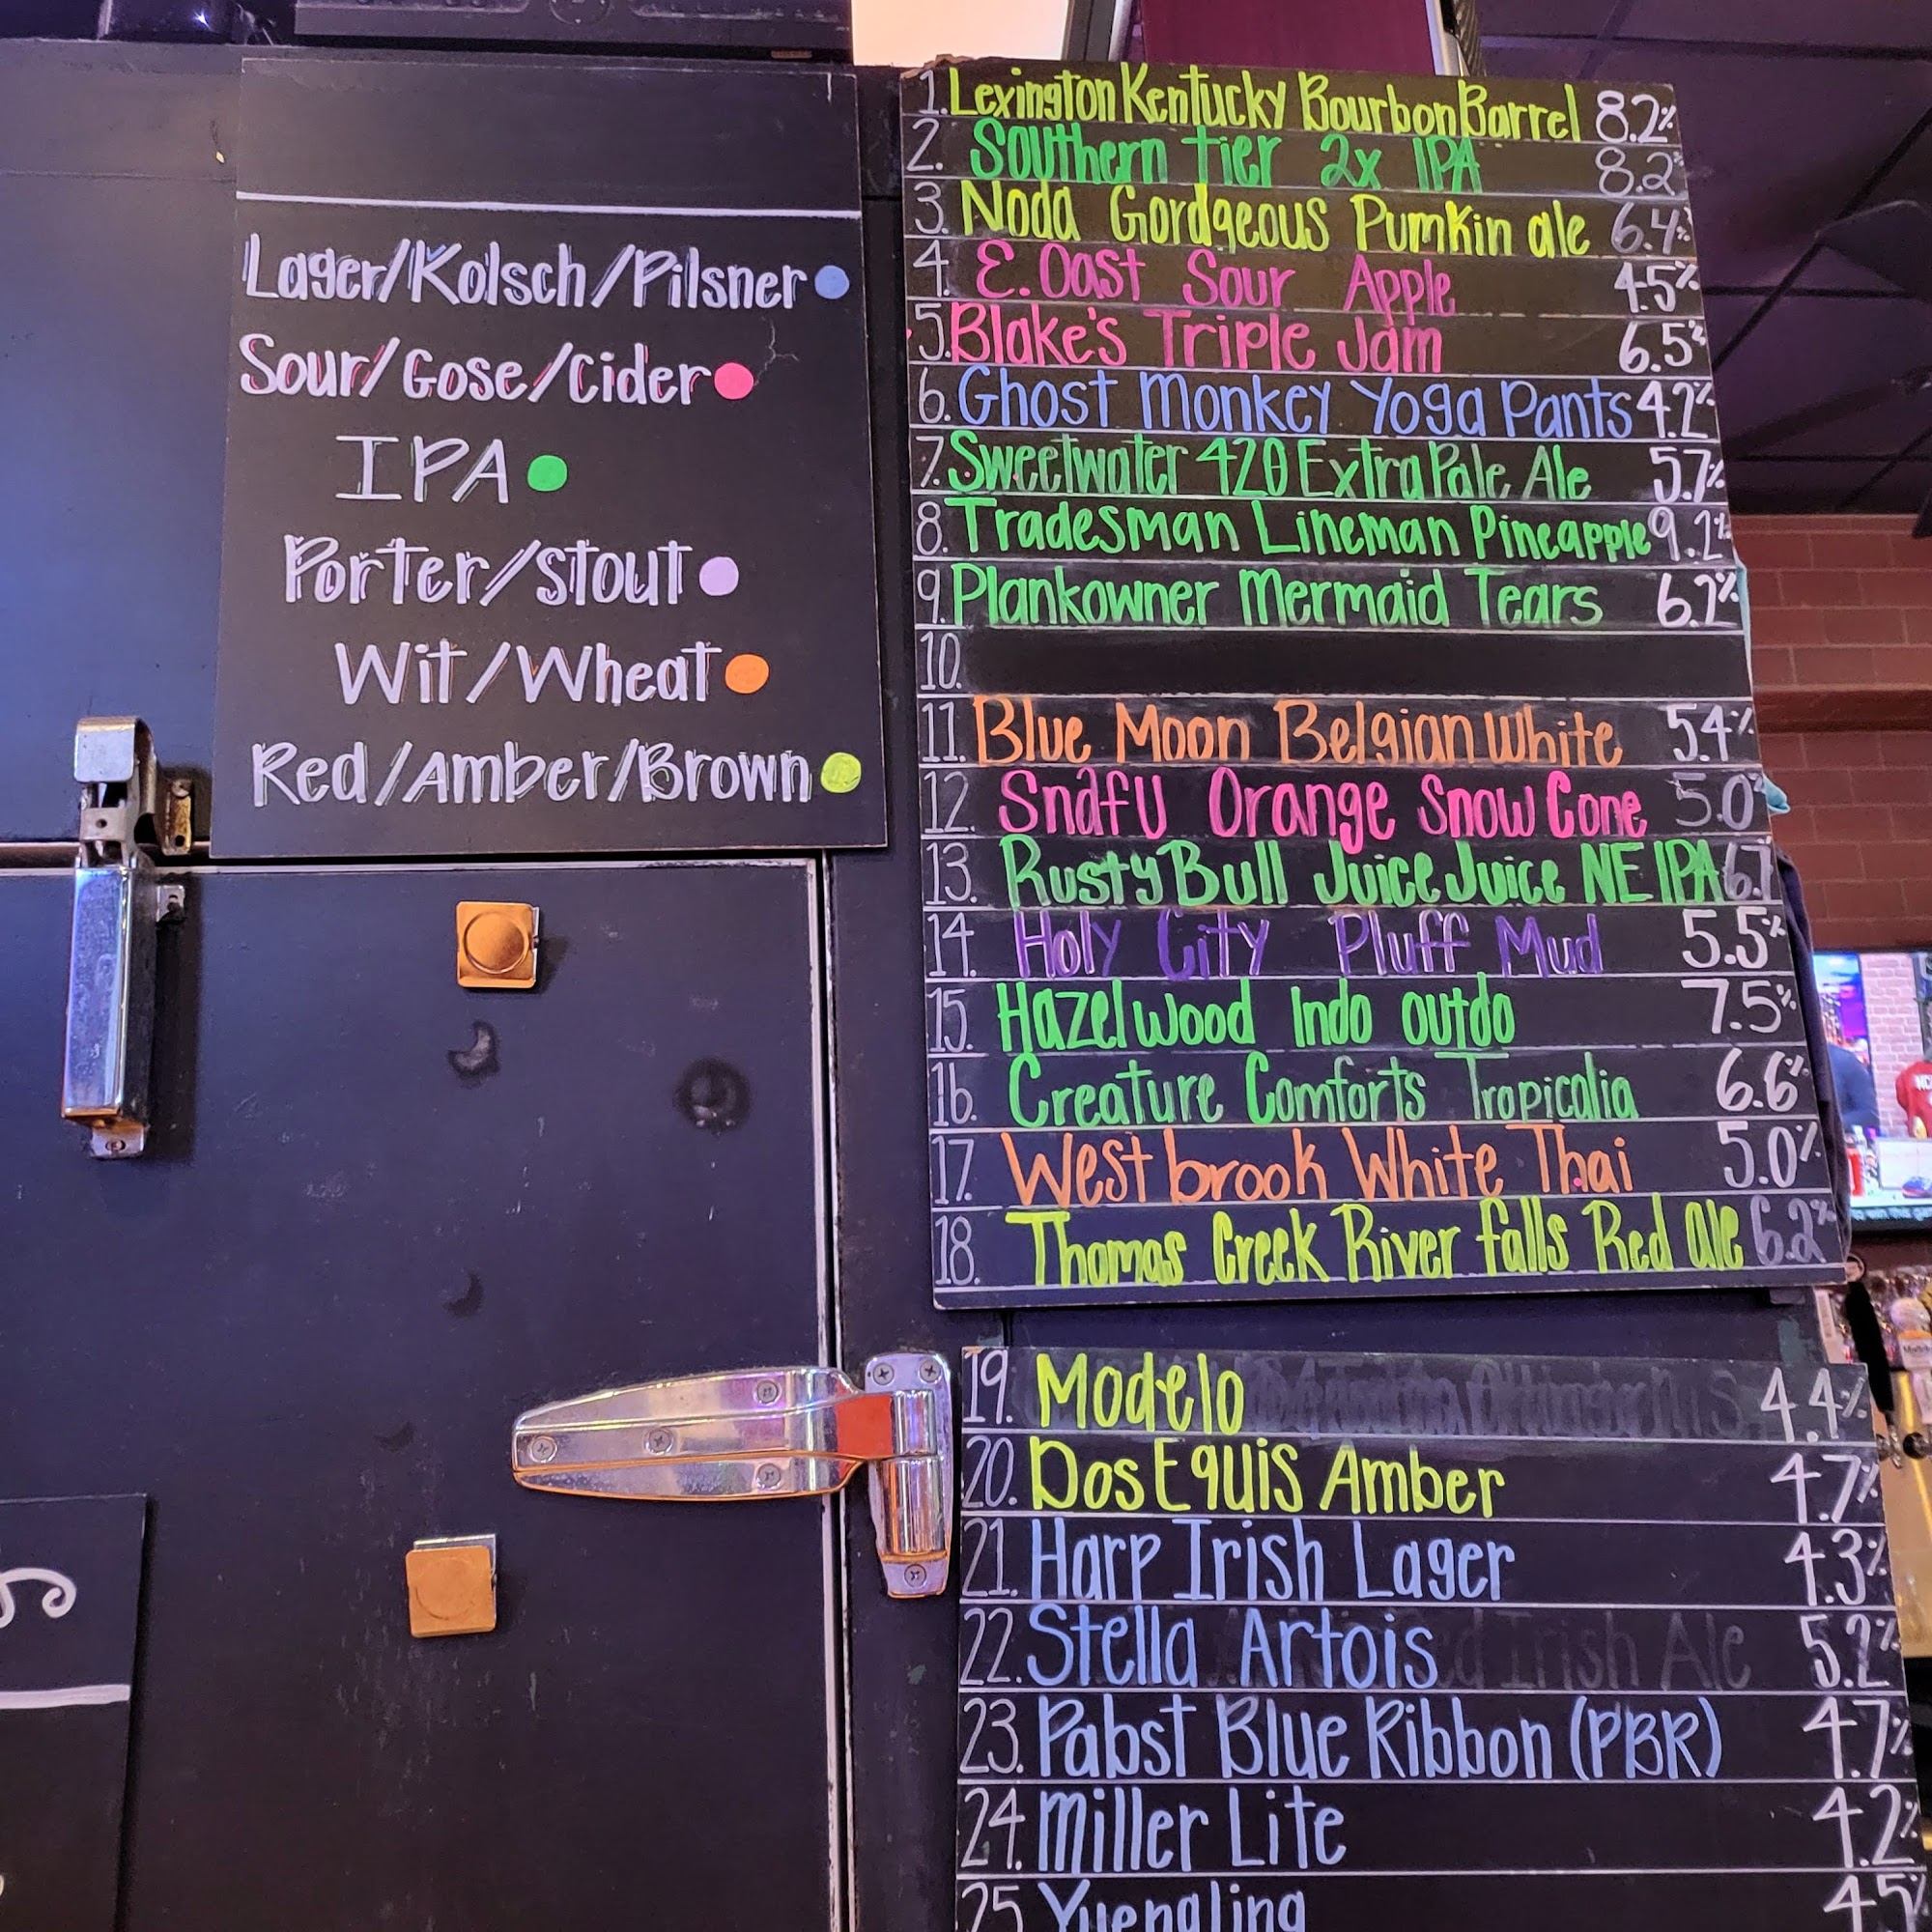 Lager/Kolsch/Pilsner
Sour/Gose/Cider
IPA
Porter/Stout
Wit/Wheat
Red/Amber/Brown
1. Lexington Kentucky Bourbon Barrel 8.2%
2. Southern Tier 2x IPA 8.2%
3. Noda Gordgeous Pumkin ale 6.4%
4. E. Oast Sour Apple 4.5%
5. Blake's Triple Jam 6.5%
6. Ghost Monkey Yoga Pants 4.2%
7. Sweetwater 420 Extra Pale Ale 5.7%
8. Tradesman Lineman Pineapple 9.2%
9. Plankowner Mermaid Tears 6.2%
10.
11. Blue Moon Belgian White 5.4%
12. Snafu Orange Snow Cone 5.0%
13. Rusty Bull Juice Juice NE IPA 6.7
14. Holy City Pluff Mud 5.5%
15. Hazelwood Indo outdo 7.5%
16. Creature Comforts Tropicalia 6.6%
17. Westbrook White Thai 5.0%
18. Thomas Creek River falls Red ale 6.2%
19. Modelo 4.4%
20. Dos Equis Amber 4.7%
21. Harp Irish Lager 4.3%
22. Stella Artois 5.2%
23. Pabst Blue Ribbon (PBR) 4.7%
24. Miller Lite 4.2%
25 Yuengling 4.5%